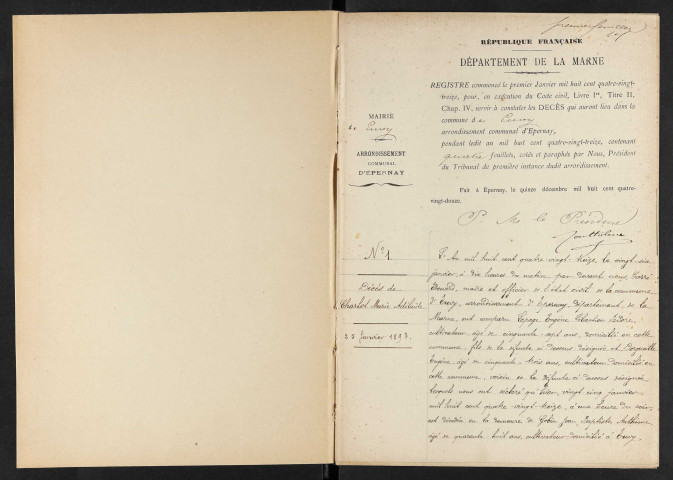 premier feuillet
RÉPUBLIQUE FRANÇAISE
DÉPARTEMENT DE LA MARNE
REGISTRE commencé le premier Janvier mil huit cent quatre-vingt-
treize, pour, en exécution du Code civil, Livre Ier, Titre II,
Chap. IV, servir à constater les DÉCÈS qui auront lieu dans la
commune d
arrondissement communal d'Epernay,
pendant ledit an mil huit cent quatre-vingt-treize, contenant
quatre feuillets, cotés et paraphés par Nous, Président
du Tribunal de première instance dudit arrondissement.
Fait à Epernay, le quinze décembre mil huit cent quatre-
vingt-douze.
P. Mr le Président
MAIRIE
de
ARRONDISSEMENT
COMMUNAL
D'ÉPERNAY
No 1
Décès de
Charlot Marie Adélaïde
25 Janvier 1893.
L'An mil huit cent quatre vingt treize, le vingt six
janvier, à dix heures du matin, par devant nous
maire et officier de l'état civil de la commune
d' arrondissement d'Epernay, département de la
Marne, ont comparu Lepage Eugène Sébastien Isidore,
cultivateur, âgé de cinquante sept ans, domicilié en cette
commune, fils de la défunte ci dessus désignée et
Eugène, âgé de cinquante trois ans, cultivateur domicilié en
cette commune, voisin de la défunte ci dessus désignée
lesquels nous ont déclaré qu'hier, vingt cinq janvier
mil huit cent quatre-vingt-treize, à une heure du soir,
est décédée en la demeure de Gobin Jean Baptiste Anthime,
âgé de quarante huit ans, cultivateur domicilié à